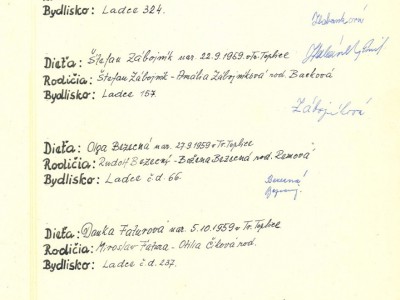 Bydlisko: Ladce 324.
Dieťa: Štefan Zábojník nar. 22.9.1959 v Tr. Teplice
Rodičia: Štefan Zábojník - Amália Zábojníková rod. Backová
Bydlisko: Ladce 167.
Dieťa: Olga Bezecná nar. 27.9.1959 v Tr. Teplice
Rodičia: Rudolf Bezecný - Božena Bezecná rod. Remová
Bydlisko: Ladce č.d. 66.
Dieťa: Danka Faturová nar. 5.10.1959 v Tr. Teplice
Rodičia: Miroslav Fatura - Otilia rod.
Bydlisko: Ladce č.d. 237.